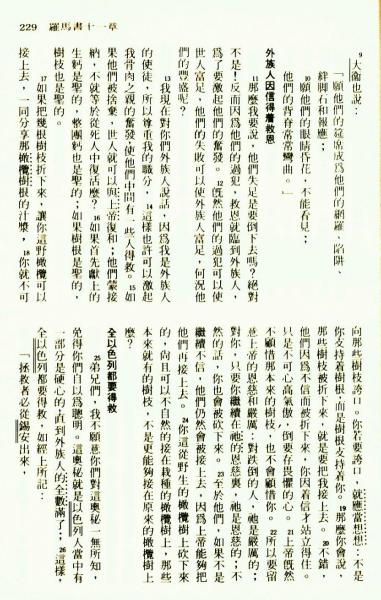 229　羅馬書十一章
9 大衞也說：
「願他們的筵席成為他們的網羅、陷阱、
絆脚石和報應；
10 願他們的眼睛昏花，不能看見；
他們的背脊常常彎曲。」
外族人因信得着救恩
11 那麼我要說，他們失足是要倒下去嗎？絕對
不是！反而因為他們的過犯，救恩就臨到外族人，
為了要激起他們的奮發。12 旣然他們的過犯可以使
世人富足，他們的失敗可以使外族人富足，何況他
們的豐盛呢？
13 我現在對你們外族人說話，因為我是外族人
的使徒，所以尊重我的職分，14 這樣也許可以激起
我骨肉之親的奮發，使他們中間有一些人得救。15 如
果他們被捨棄，世人就可以與上帝復和；他們蒙接
納，不就等於從死人中復活麼？16 如果首先獻上的
生麪是聖的，整團麪也是聖的；如果樹根是聖的，
樹枝也是聖的。
17 如果把幾根樹枝折下來，讓你這野橄欖可以
接上去，一同分享那橄欖樹根的汁漿，18 你就不可
向那些樹枝誇口。你若要誇口，就應當想想：不是
你支持着樹根，而是樹根支持着你。19 那麼你會說，
那些樹枝被折下來，就是要把我接上去。20 不錯，
他們因為不信而被折下來，你因着信才站立得住。
只是不可心高氣傲，倒要存畏懼的心。21 上帝旣然
不顧惜那本來的樹枝，也不會顧惜你。22 所以要留
意上帝的恩慈和嚴厲：對跌倒的人，祂是嚴厲的；
對你，只要你繼續在祂的恩慈裏，祂是恩慈的；不
然的話，你也會被砍下來。23 至於他們，如果不是
繼續不信，他們仍然會被接上去，因為上帝能夠把
他們再接上去。24 你這從野生的橄欖樹上砍下來
的，尚且可以不自然的接在栽種的橄欖樹上，那些
本來就有的樹枝，不是更能夠接在原來的橄欖樹上
麼？
全以色列都要得救
25 弟兄們，我不願意你們對這奧秘一無所知，
免得你們自以為聰明。這奧秘就是以色列人當中有
一部分是硬心的，直到外族人的全數滿了；26 這樣，
全以色列都要得救，如經上所記：
「拯救者必從錫安出來，